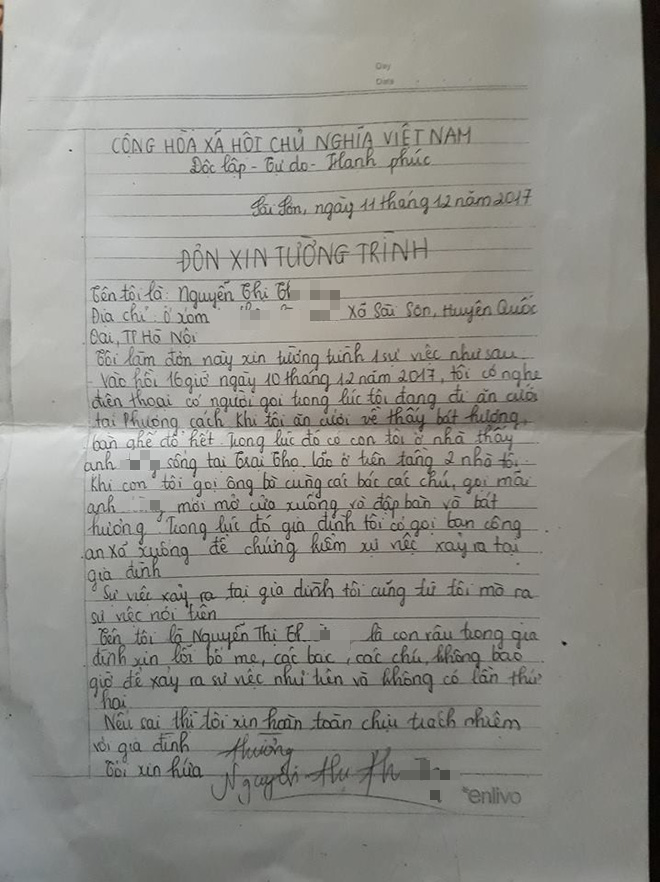 Day
Date
CỘNG HÒA XÃ HỘI CHỦ NGHĨA VIỆT NAM
Độc lập - Tự do - Hanh phúc
Sài Sơn, ngày 11 tháng 12 năm 2017
ĐƠN XIN TƯỜNG TRÌNH
Tên tôi là: Nguyễn Thị Th
Địa chỉ: ở xóm Xã Sài Sơn, Huyện Quốc
Oai, TP Hà Nội
Tôi làm đơn này xin tường trình 1 sự việc như sau
- Vào hồi 16 giờ ngày 10 tháng 12 năm 2017, tôi có nghe
điện thoại có người gọi trong lúc tôi đang đi ăn cưới
tại Phượng cách Khi tôi ăn cưới về thấy bát hương,
bàn ghế đổ hết Trong lúc đó có con tôi ở nhà thấy
anh , sống tại Trại Tho ở trên tầng 2 nhà tôi.
Khi con tôi gọi ông bà cùng các bác các chú, gọi mãi
anh , mới mở cửa xuống và đập bàn và bát
hương Trong lúc đó gia đình tôi có gọi ban công
an xã xuống để chứng kiếm sự việc xảy ra tại
gia đình
Sự việc xảy ra tại gia đình tôi cũng từ tôi mà ra
sự việc nói trên
Tên tôi là Nguyễn Thị Th là con râu trong gia
đình xin lỗi bố mẹ, các bác, các chú, không bao
giờ để xảy ra sự việc như trên và không có lần thứ
hai
Nếu sai thì tôi xin hoàn toàn chịu trách nhiệm
với gia đình
Tôi xin hứa
thường
Nguyễn Thị Th
enlivo